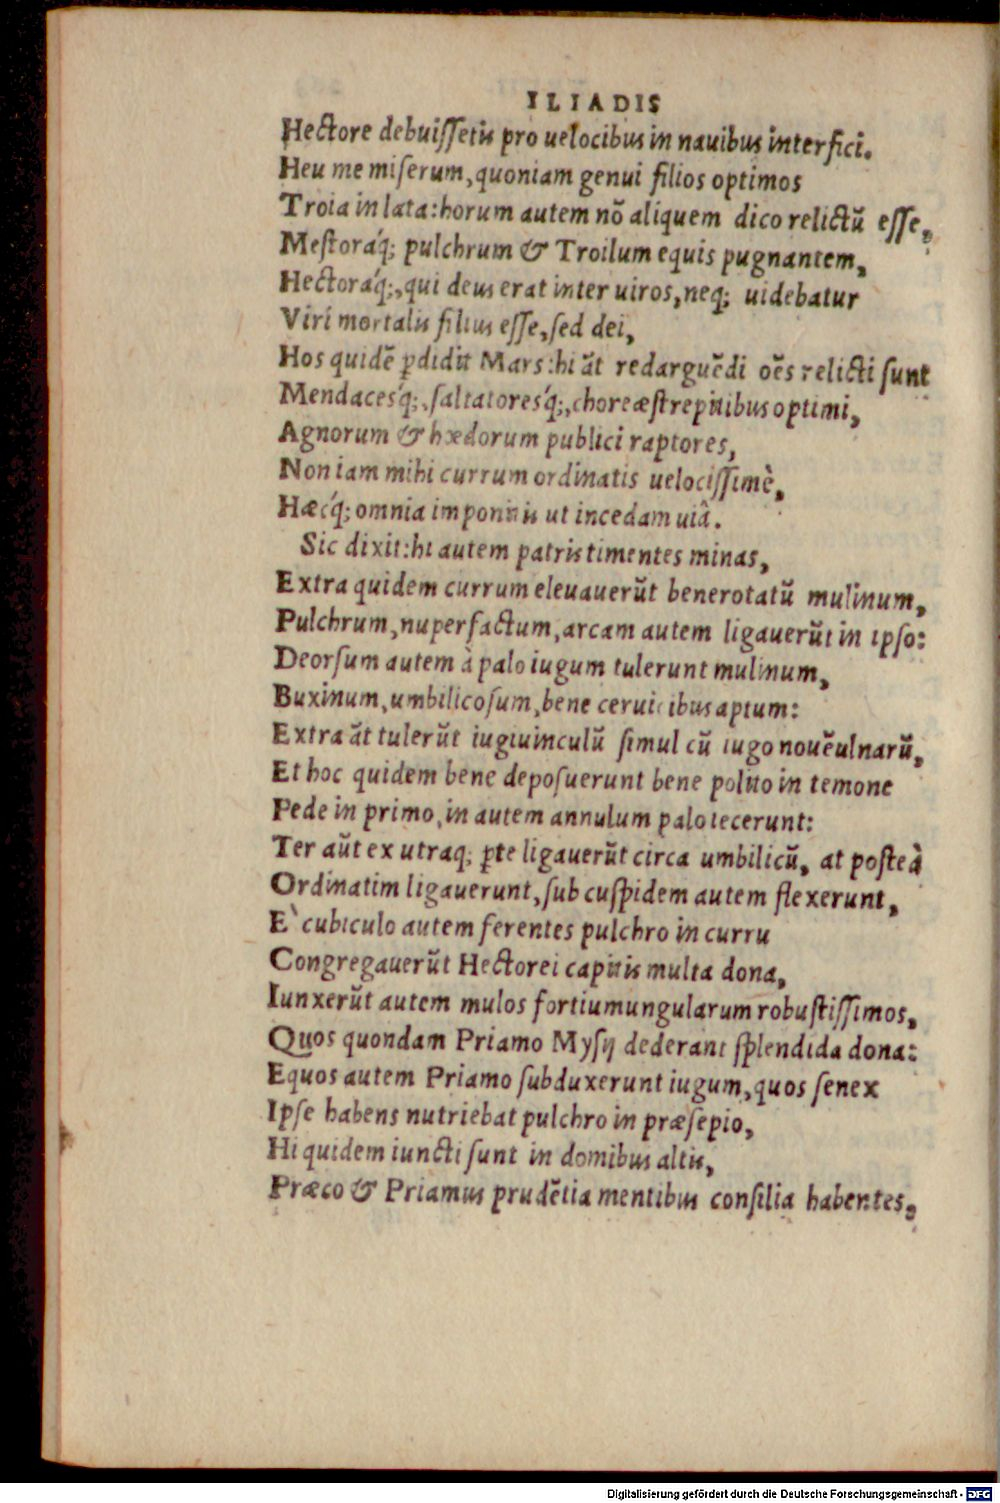 ILIADIS
Hectore debuissetis pro uelocibus in nauibus interfici.
Heu me miserum, quoniam genui filios optimos
Troia in lata: horum autem nō aliquem dico relictū esse,
Mestoráq; pulchrum & Troilum equis pugnantem,
Hectoráq;, qui deus erat inter uiros, neq; uidebatur
Viri mortalis filius esse, sed dei,
Hos quidē ꝑdidit Mars: hi āt redarguēdi oēs relicti sunt
Mendacesq́;, saltatoresq́;, choreæstrepitibus optimi,
Agnorum & hædorum publici raptores,
Non iam mihi currum ordinatis uelocissimè,
Hæcq́; omnia imponitis ut incedam uiā.
Sic dixit: hi autem patris timentes minas,
Extra quidem currum eleuauerūt benerotatū mulinum,
Pulchrum, nuperfactum, arcam autem ligauerūt in ipso:
Deorsum autem à palo iugum tulerunt mulinum,
Buxinum, umbilicosum, bene ceruicibus aptum:
Extra āt tulerūt iugiuinculū simul cū iugo nouēulnarū,
Et hoc quidem bene deposuerunt bene polito in temone
Pede in primo, in autem annulum palo iecerunt:
Ter aūt ex utraq; ꝑte ligauerūt circa umbilicū, at posteà
Ordinatim ligauerunt, sub cuspidem autem flexerunt,
E` cubiculo autem ferentes pulchro in curru
Congregauerūt Hectorei capitis multa dona,
Iunxerūt autem mulos fortiumungularum robustissimos,
Quos quondam Priamo Mysij dederant splendida dona:
Equos autem Priamo subduxerunt iugum, quos senex
Ipse habens nutriebat pulchro in præsepio,
Hi quidem iuncti sunt in domibus altis,
Præco & Priamus prudētia mentibus consilia habentes.
Digitalisierung gefördert durch die Deutsche Forschungsgemeinschaft - DFG